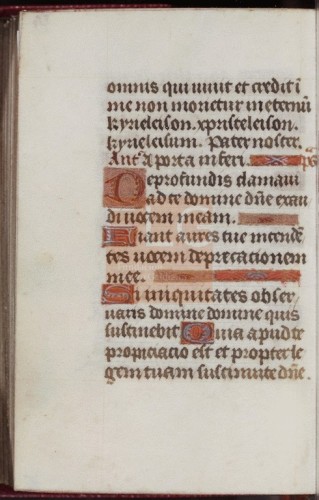 omnis qui uiuit et credit ī
me non morietur in eternū
kyrieleison. xpristeleison.
kyrieleisum. Pater noster.
Ant'a A porta inferi. ps
De profundis clamaui
ad te domine dn̄e exau
di uocem meam.
Fiant aures tue intendē
tes uocem deprecationem
mee.
Si iniquitates obser
uaris domine domine quis
sustinebit Quia apud te
propiciacio est et propter le
gem tuam sustinuite dn̄e.